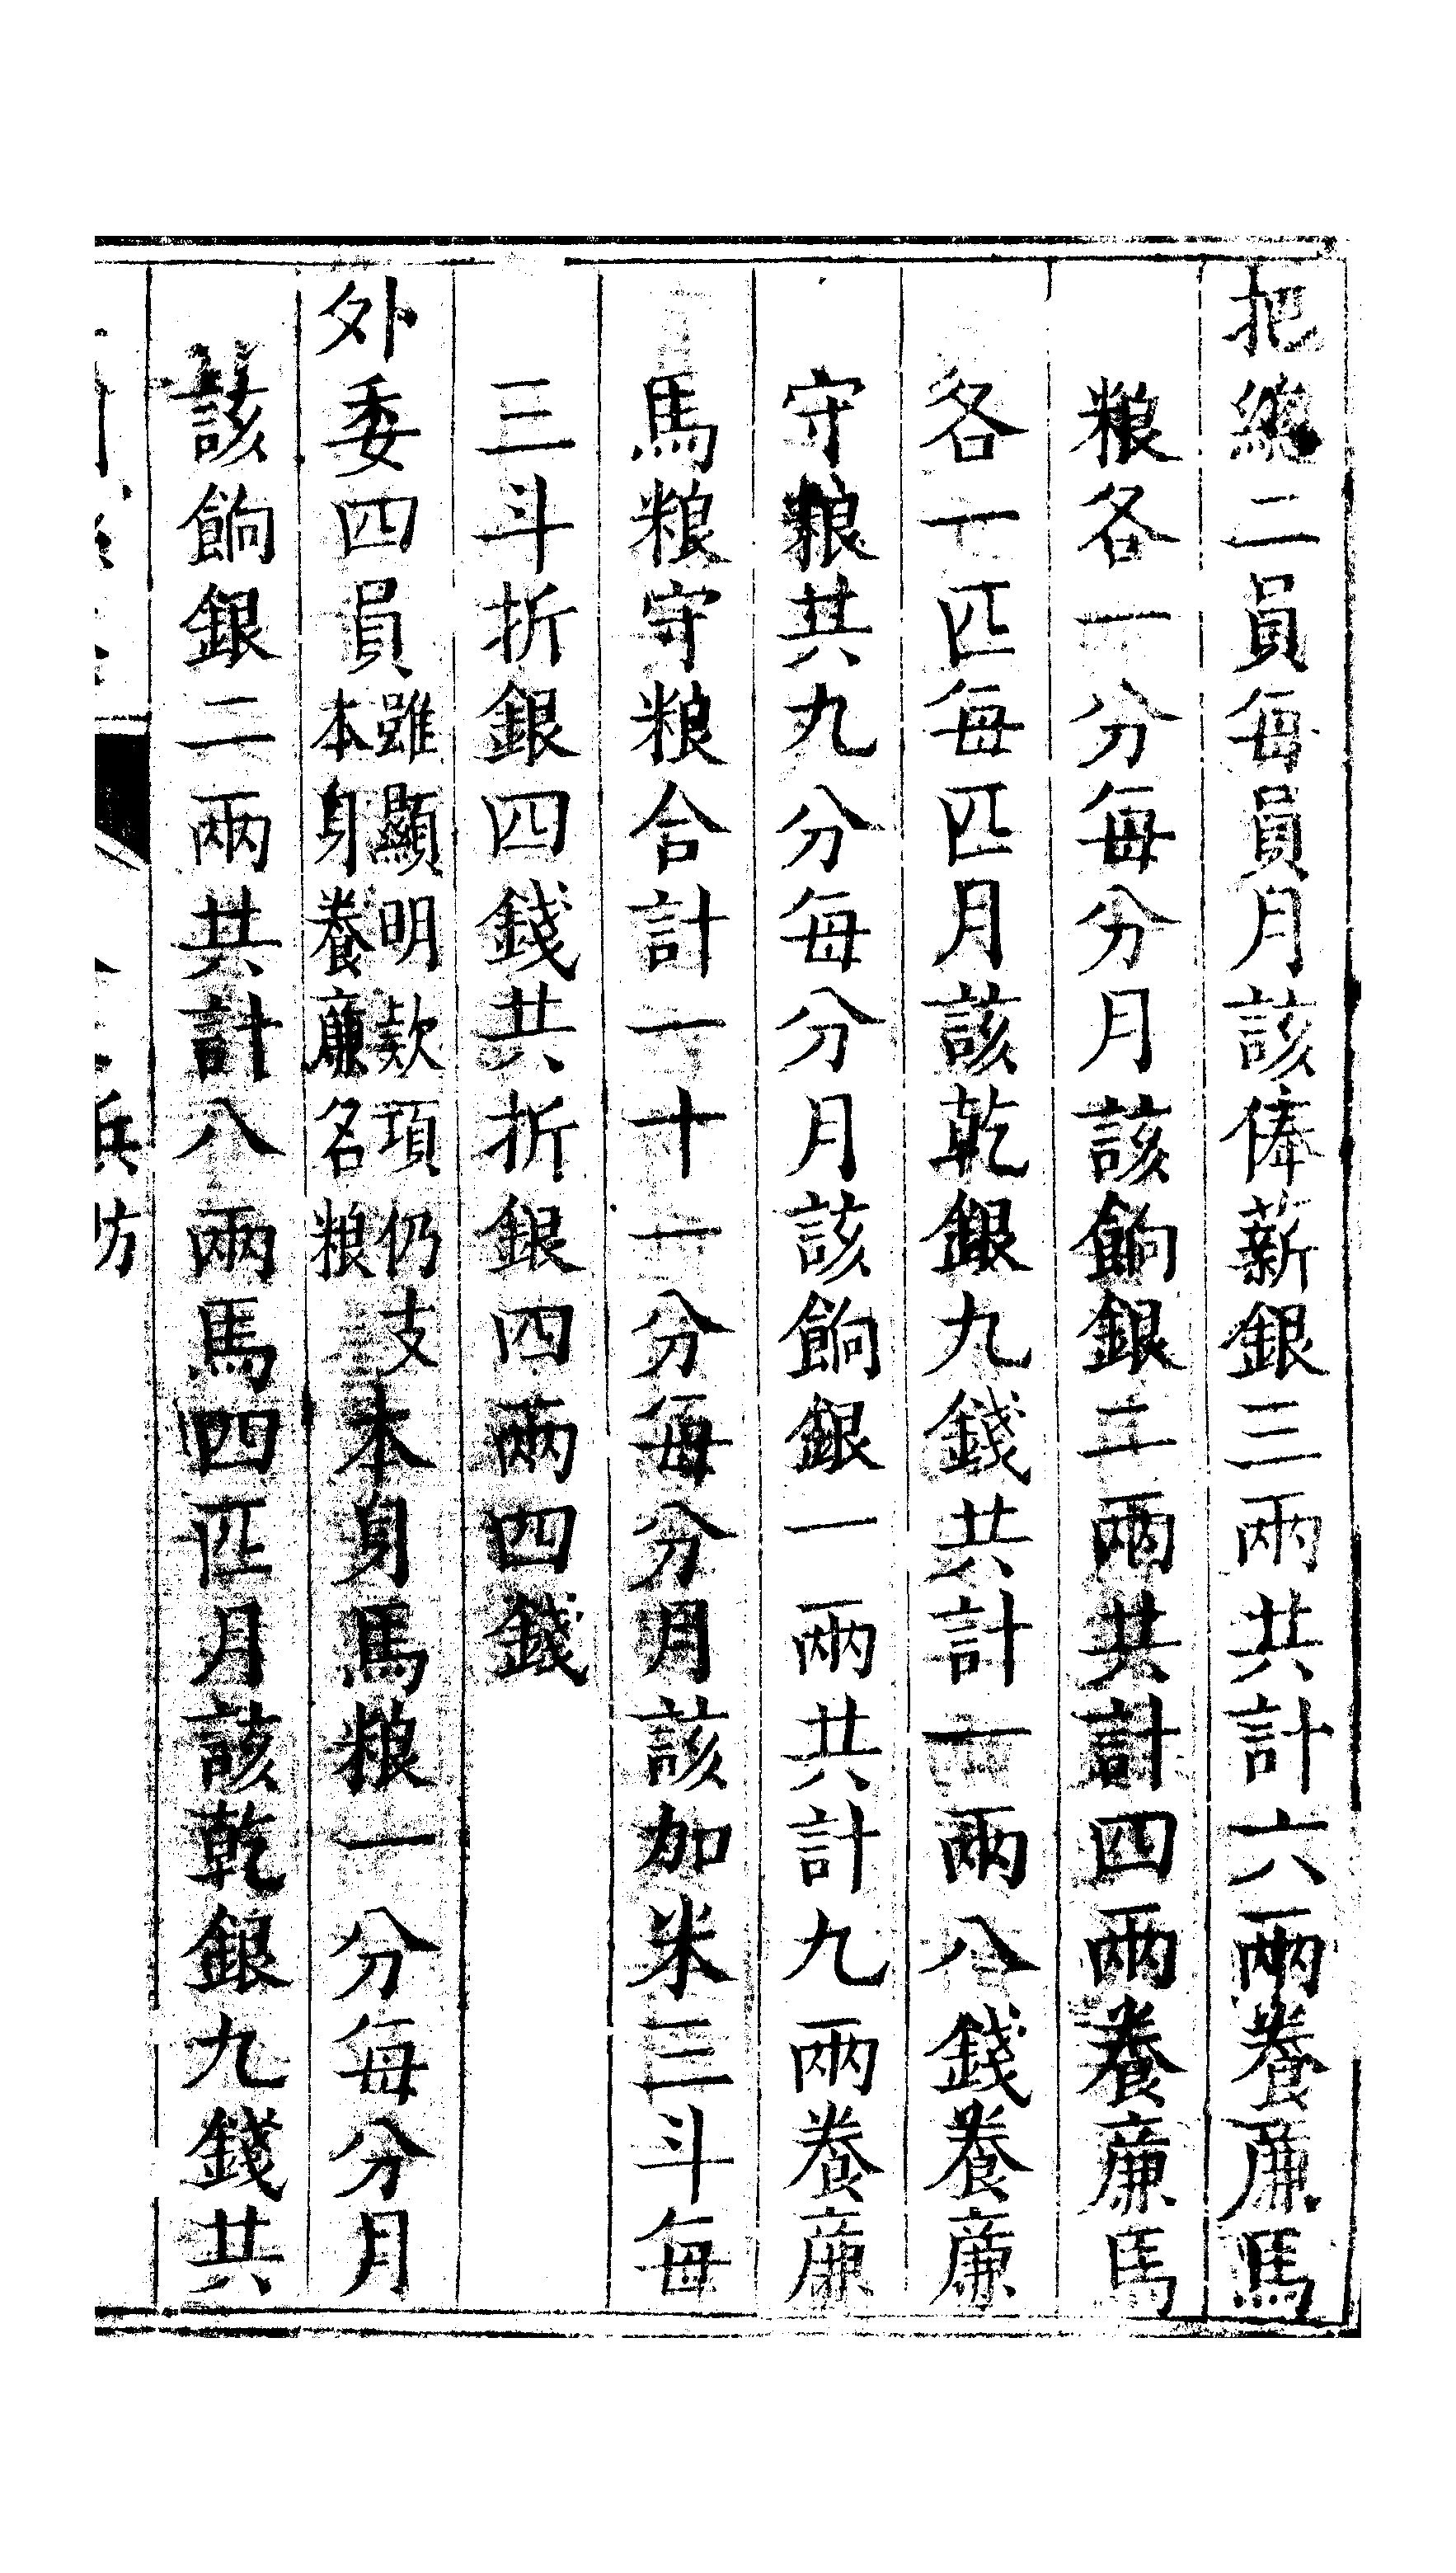 把總二員每員月該俸薪銀三兩共計六兩養廉馬
粮各一分每分月該餉銀二兩共計四兩養廉馬
各一匹每匹月該乾銀九錢共計一兩八錢養廉
守粮共九分每分月該餉銀一兩共計九兩養廉
馬粮守粮合計一十一分每分月該加米三斗每
三斗折銀四錢共折銀四兩四錢
外委四員雖顯明欵項仍支本身養廉名粮本身馬粮一分每分月
該餉銀二兩共計八兩馬四匹月該乾銀九錢共
兵防